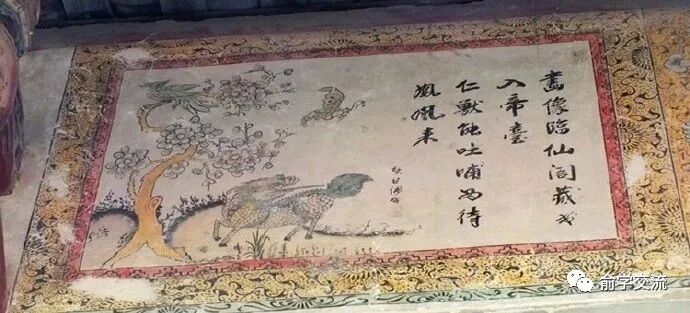 畫像臨仙閣藏
入帝臺
仁獸能吐哺為待
鳳凰来
俞学交流